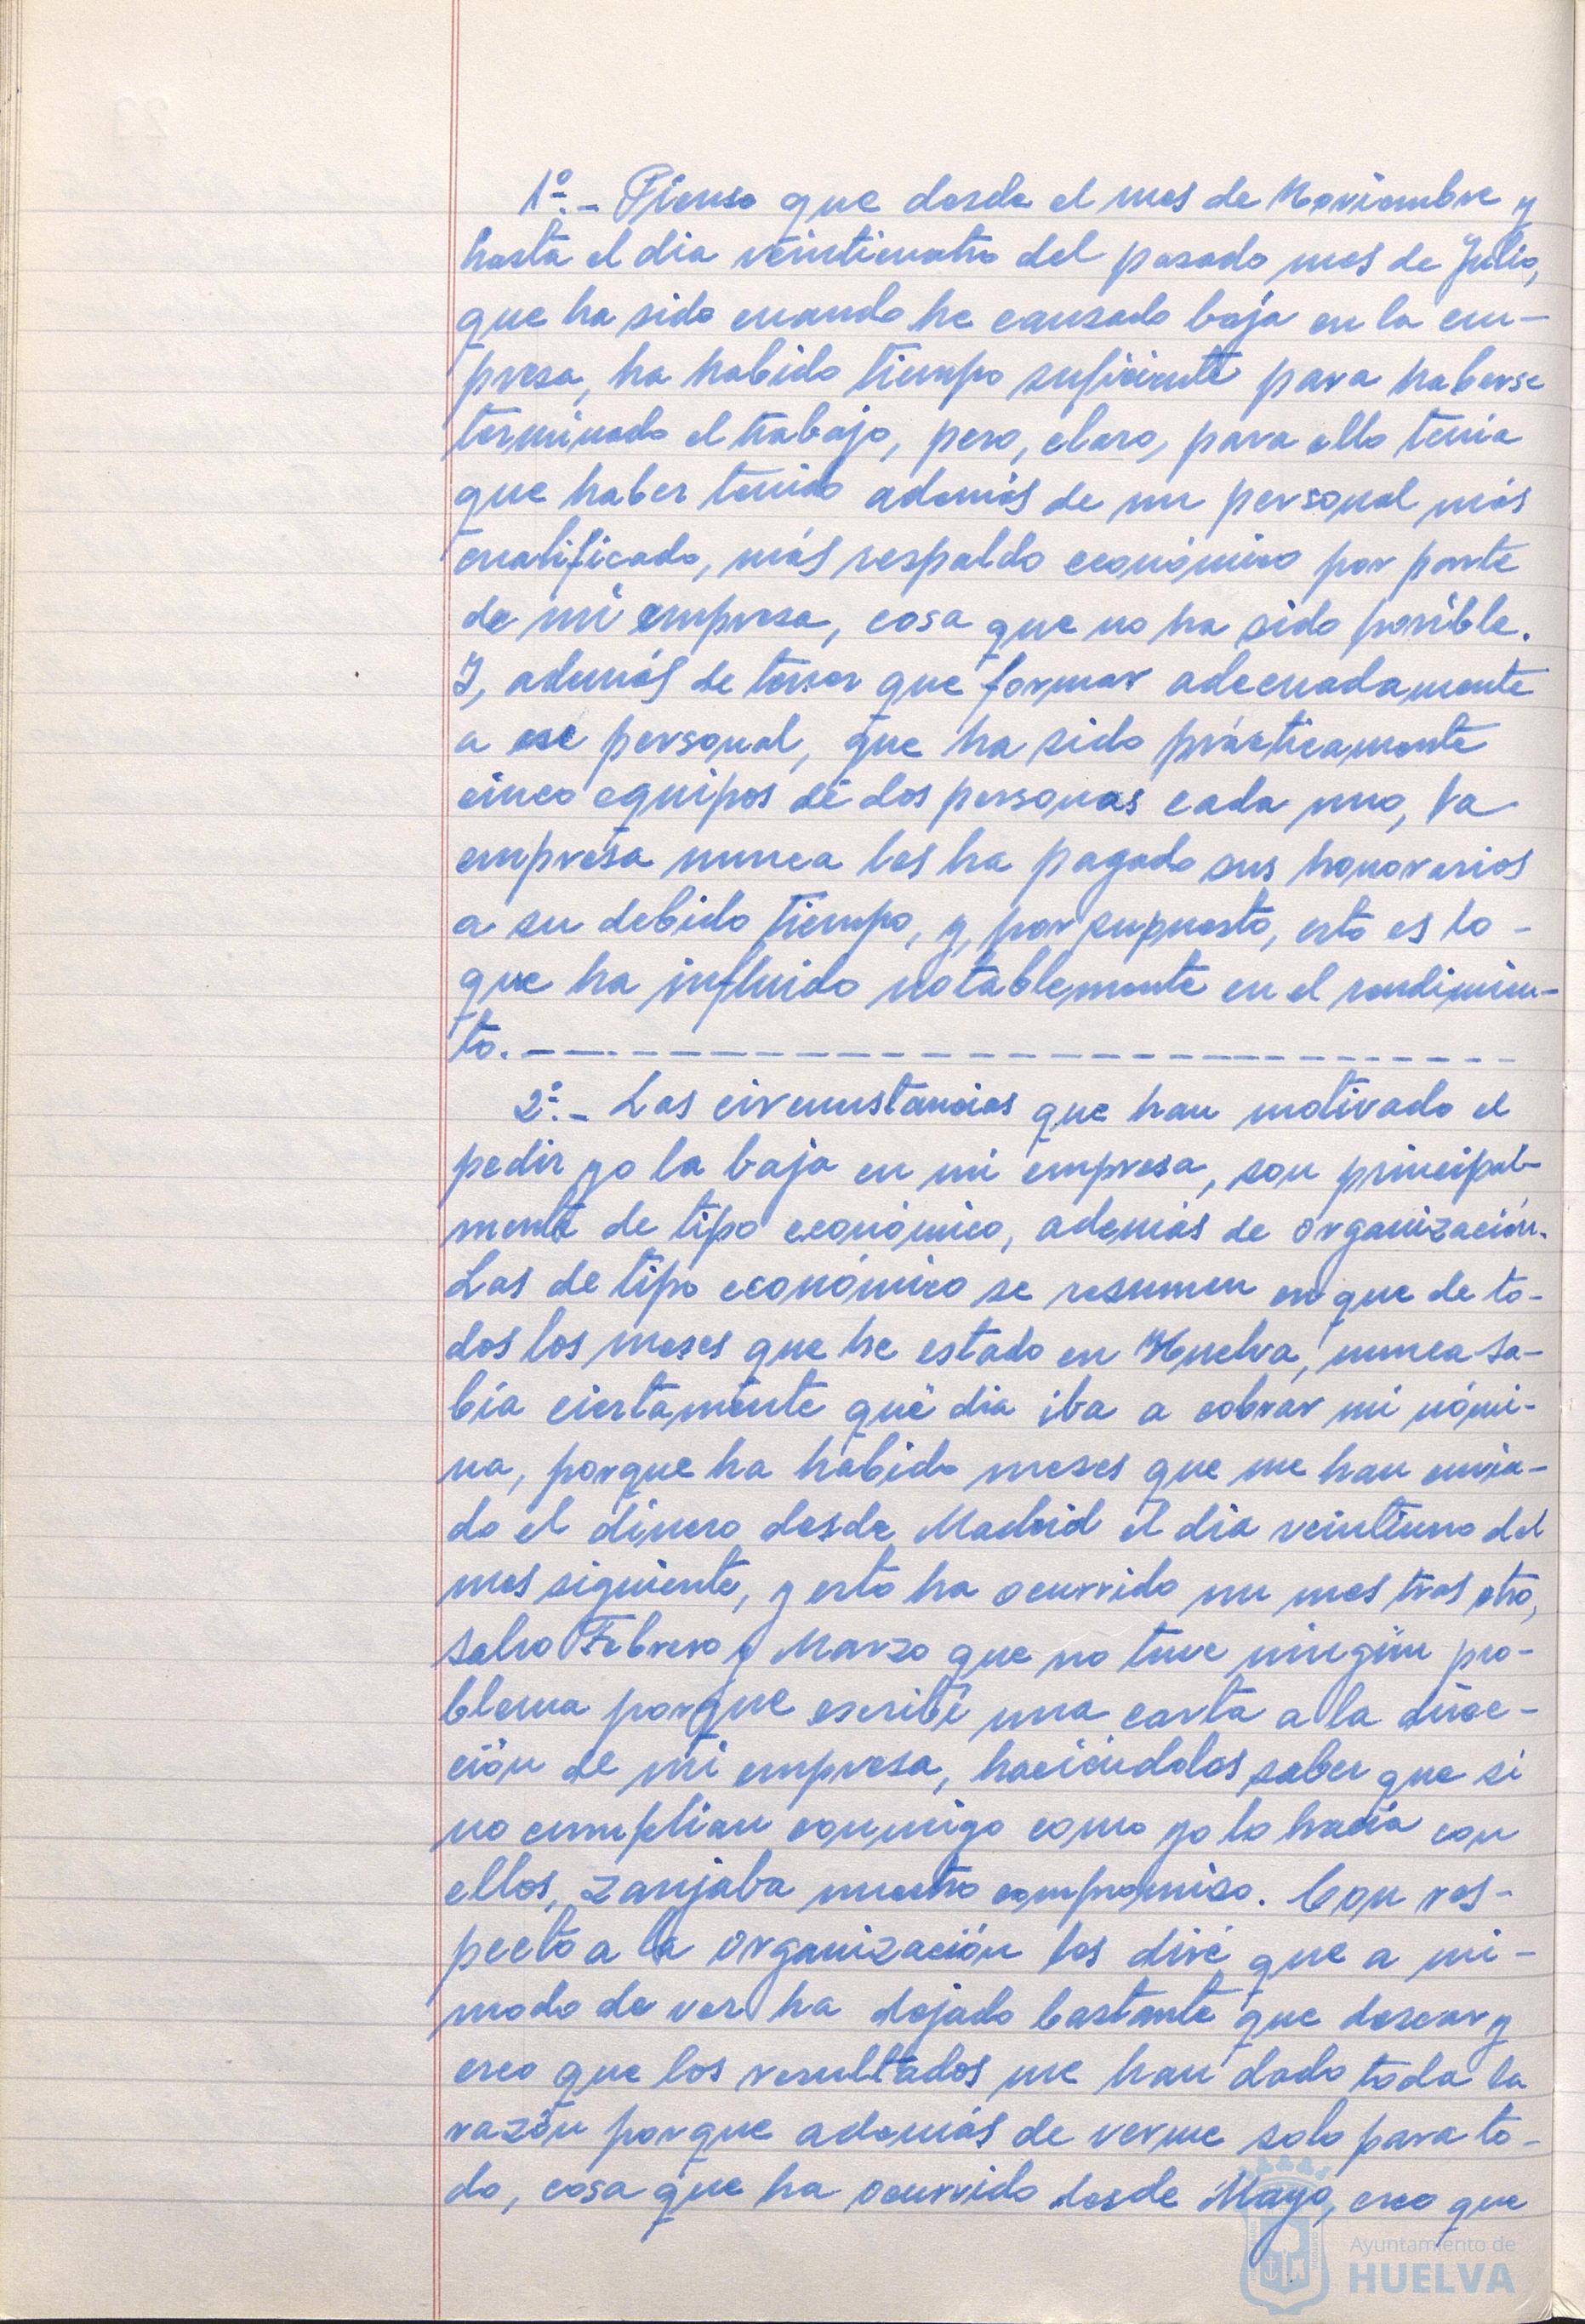 1º.- Pienso que desde el mes de Noviembre y
hasta el dia veinticuatro del pasado mes de Julio,
que ha sido cuando he causado baja en la em-
presa, ha habido tiempo suficiente para haberse
terminado el trabajo, pero, claro, para ello tenia
que haber tenido además de un personal más
cualificado, más respaldo económico por parte
de mi empresa, cosa que no ha sido posible.
Y, además de tener que formar adecuadamente
a ese personal, que ha sido prácticamente
cinco equipos de dos personas cada uno, la
empresa nunca les ha pagado sus honorarios
a su debido tiempo, y, por supuesto, esto es lo -
que ha influido notablemente en el rendimien-
to.
2º.- Las circunstancias que han motivado el
pedir yo la baja en mi empresa, son principal-
mente de tipo económico, además de organización.
Las de tipo económico se resumen en que de to-
dos los meses que he estado en Huelva, nunca sa-
bía ciertamente qué dia iba a cobrar mi nómi-
na, porque ha habido meses que me han envia-
do el dinero desde Madrid el dia veintiuno del
mes siguiente, y esto ha ocurrido un mes tras otro,
salvo Febrero y Marzo que no tuve ningún pro-
blema porque escribí una carta a la direc-
ción de mi empresa, haciéndoles saber que si
no cumplian conmigo como yo lo hacía con
ellos, zanjaba nuestro compromiso. Con res-
pecto a la organización les diré que a mi -
modo de ver ha dejado bastante que desear y
creo que los resultados me han dado toda la
razón porque además de verme solo para to-
do, cosa que ha ocurrido desde Mayo, creo que
Ayuntamiento de
HUELVA